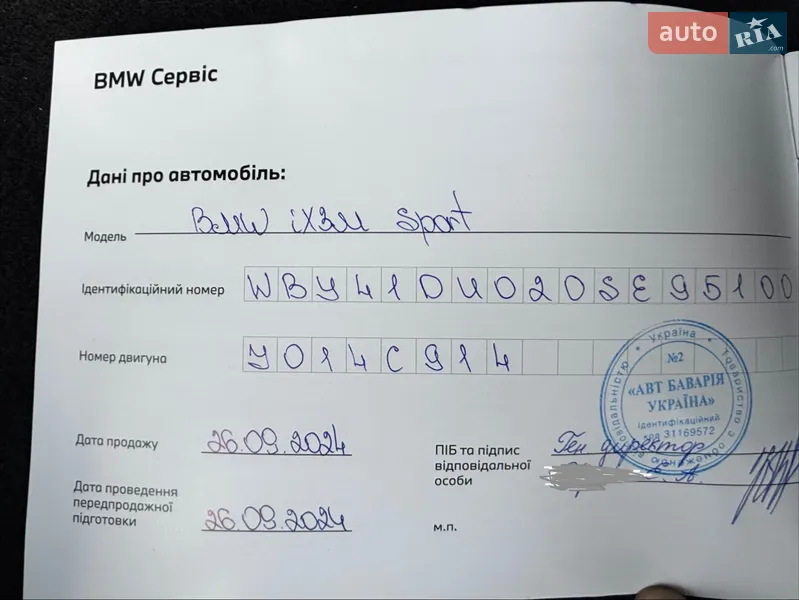 auto RIA .com
BMW Сервіс
Дані про автомобіль:
Модель BMW iX3M Sport
Ідентифікаційний номер WBY41DU020SE95100
Номер двигуна J014C914
Дата продажу 26.09.2024
Дата проведення
передпродажної
підготовки 26.09.2024
ПІБ та підпис
відповідальної
особи
Ген. директор
м.п.
Україна
№2
«АВТ БАВАРІЯ
УКРАЇНА»
ідентифікаційний
код 31169572